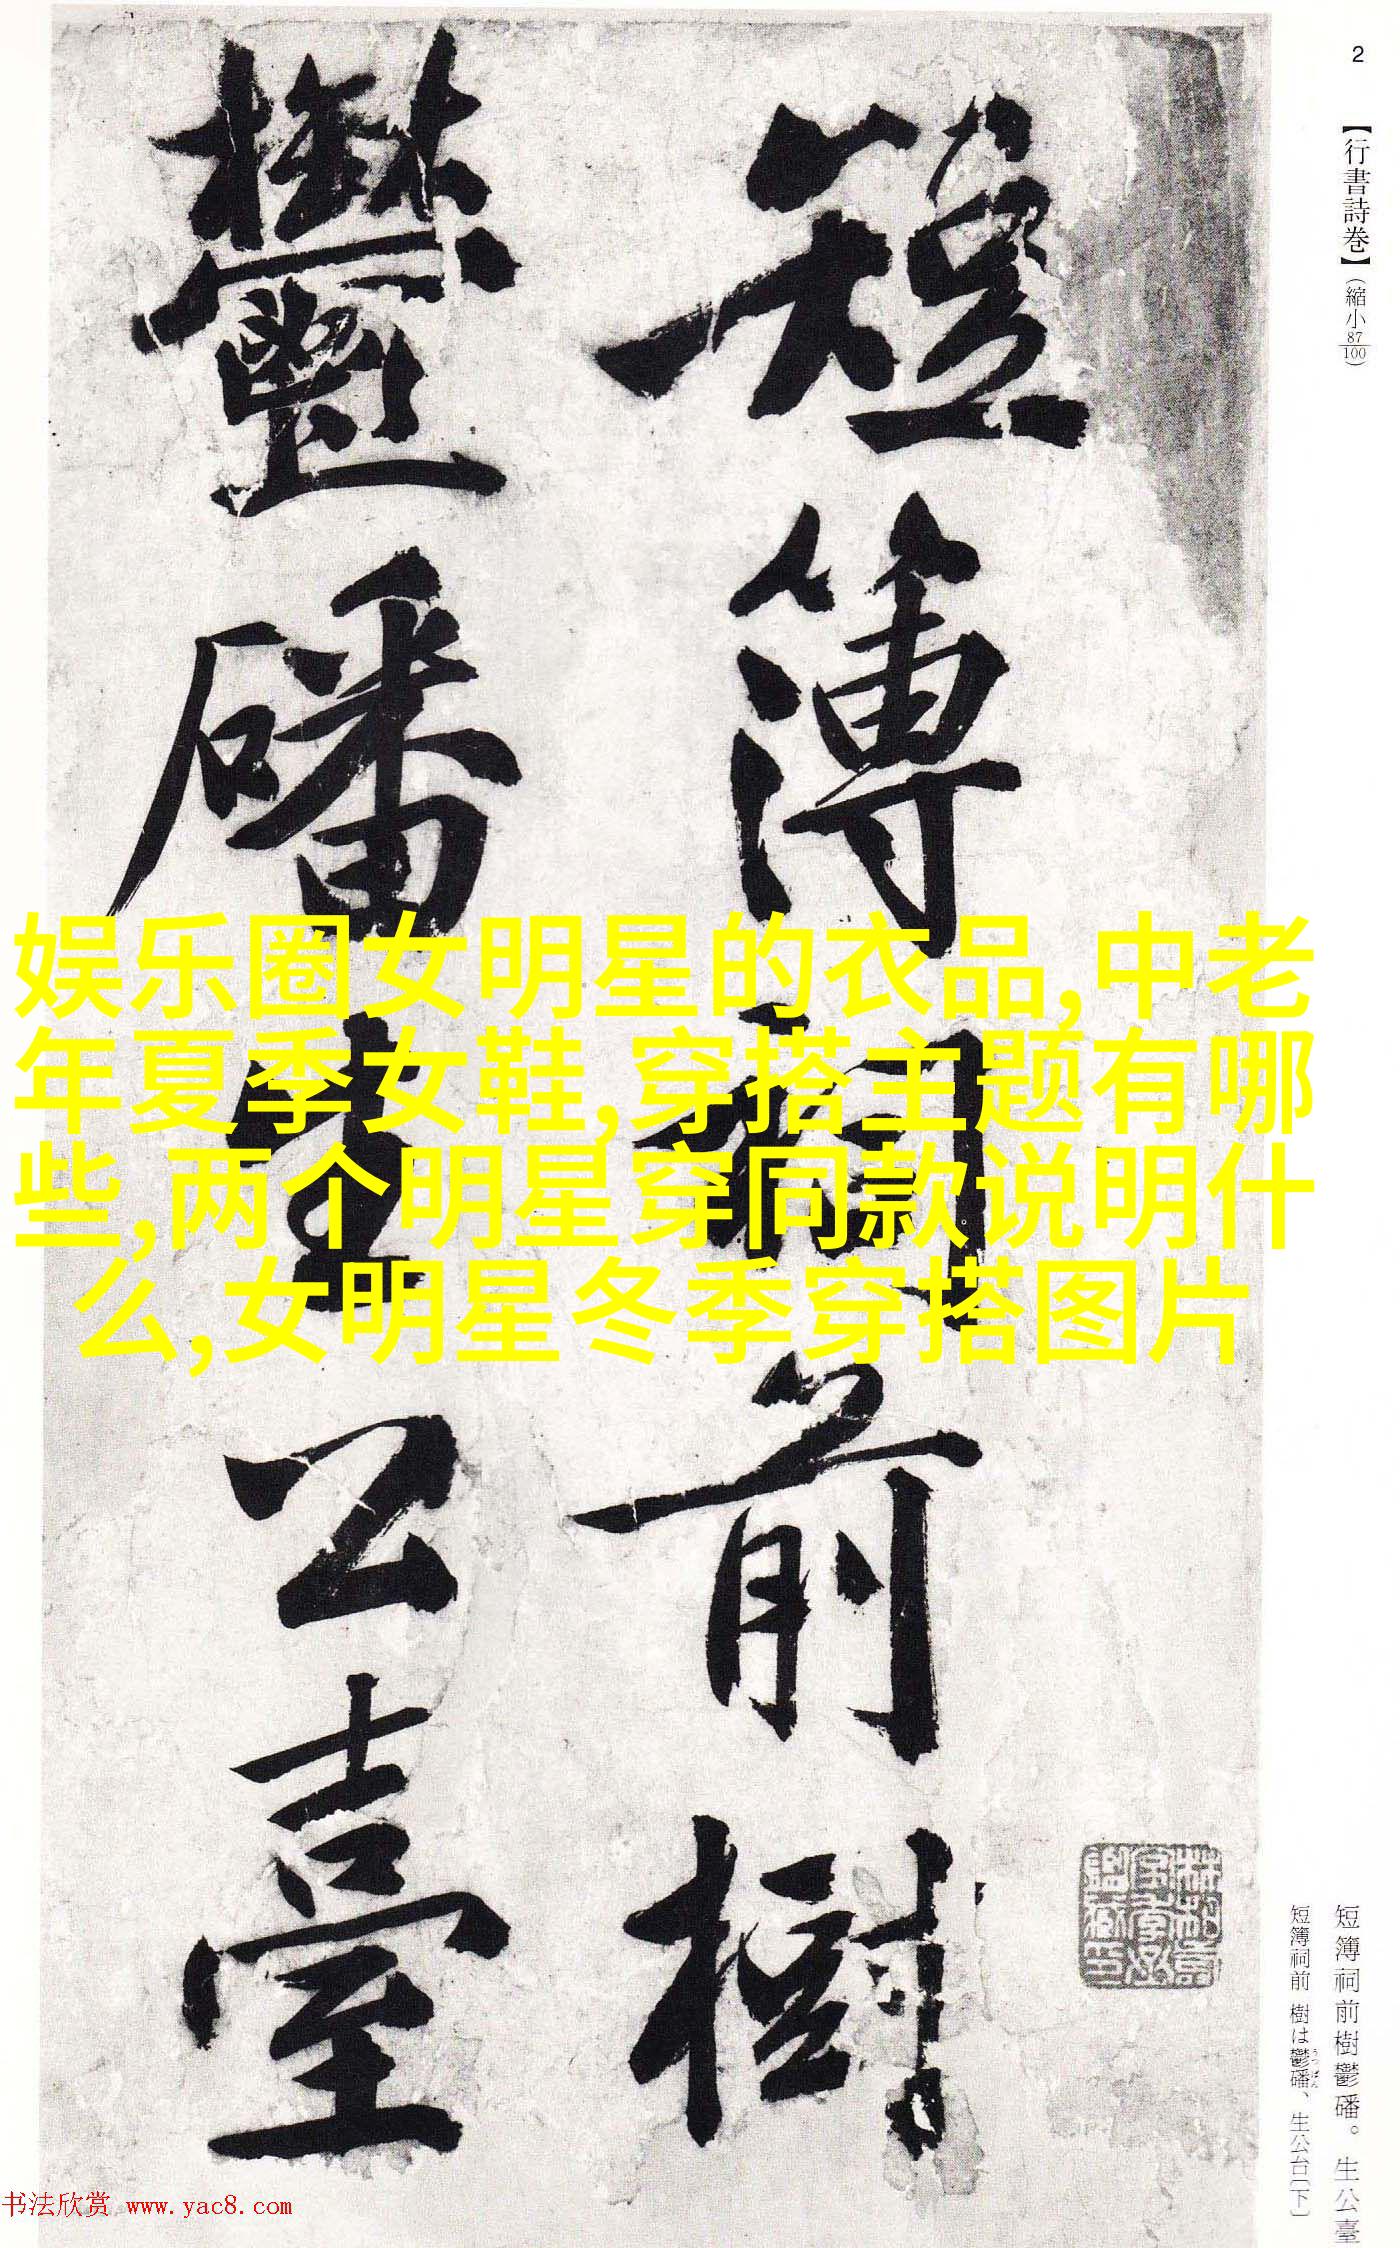 2
【行書詩巻】(縮小87/100)
短簿祠前樹
鬱磻生公臺
娱乐圈女明星的衣品,中老
年夏季女鞋,穿搭主题有哪
些,两个明星穿同款说明什
么,女明星冬季穿搭图片
短簿祠前樹鬱磻。生公臺
短簿祠前 樹は鬱磻、生公台(下)
书法欣赏 www.yac8.com